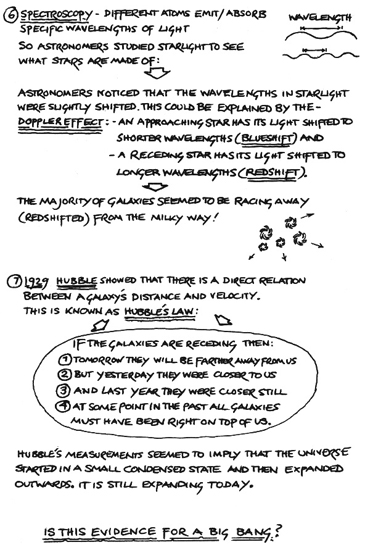 ⑥ SPECTROSCOPY - DIFFERENT ATOMS EMIT/ABSORB
SPECIFIC WAVELENGTHS OF LIGHT
WAVELENGTH
SO ASTRONOMERS STUDIED STARLIGHT TO SEE
WHAT STARS ARE MADE OF:
ASTRONOMERS NOTICED THAT THE WAVELENGTHS IN STARLIGHT
WERE SLIGHTLY SHIFTED. THIS COULD BE EXPLAINED BY THE -
DOPPLER EFFECT: - AN APPROACHING STAR HAS ITS LIGHT SHIFTED TO
SHORTER WAVELENGTHS (BLUESHIFT) AND
- A RECEDING STAR HAS ITS LIGHT SHIFTED TO
LONGER WAVELENGTHS (REDSHIFT).
THE MAJORITY OF GALAXIES SEEMED TO BE RACING AWAY
(REDSHIFTED) FROM THE MILKY WAY!
⑦ 1929 HUBBLE SHOWED THAT THERE IS A DIRECT RELATION
BETWEEN A GALAXY'S DISTANCE AND VELOCITY.
THIS IS KNOWN AS HUBBLE'S LAW:
IF THE GALAXIES ARE RECEDING THEN:
① TOMORROW THEY WILL BE FARTHER AWAY FROM US
② BUT YESTERDAY THEY WERE CLOSER TO US
③ AND LAST YEAR THEY WERE CLOSER STILL
④ AT SOME POINT IN THE PAST ALL GALAXIES
MUST HAVE BEEN RIGHT ON TOP OF US.
HUBBLE'S MEASUREMENTS SEEMED TO IMPLY THAT THE UNIVERSE
STARTED IN A SMALL CONDENSED STATE AND THEN EXPANDED
OUTWARDS. IT IS STILL EXPANDING TODAY.
IS THIS EVIDENCE FOR A BIG BANG?